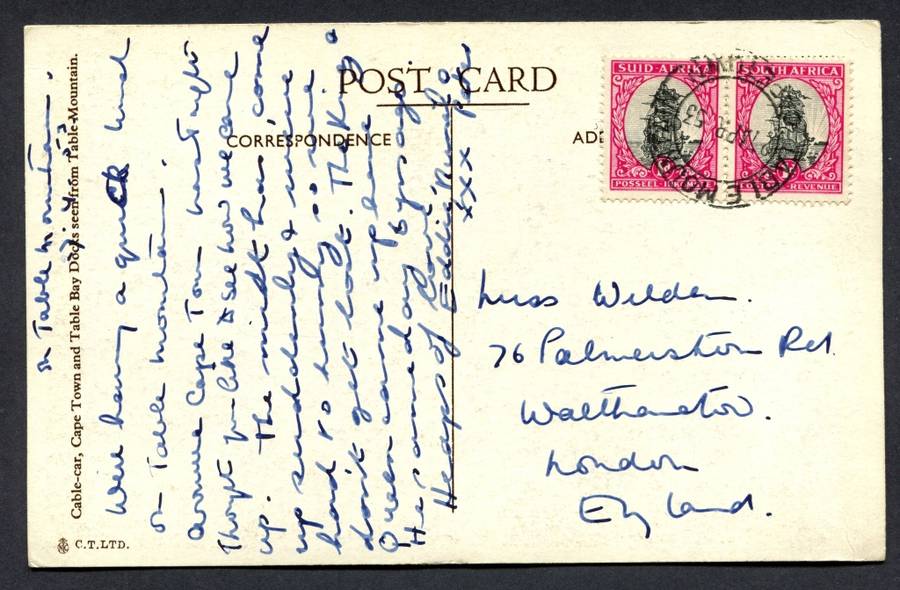 POST CARD
CORRESPONDENCE
ADD
SUID-AFRIKA
SOUTH AFRICA
POSSEEL-
-REVENUE
APR 53
Cable-car, Cape Town and Table Bay Docks seen from Table Mountain.
C.T.LTD.
on Table mountain.
We're having a quick lunch
on Table mountain.
around Cape Town
Thought you'd like to see how we came
up. The mist has come
up suddenly & we've
had to hurry or we
don't get lost. The King &
Queen came up here
the same day 6 yrs ago.
Love,
Heaps of
Eddie
xxx
Miss Welden.
76 Palmerston Rd.
Walthamstow.
London
England.